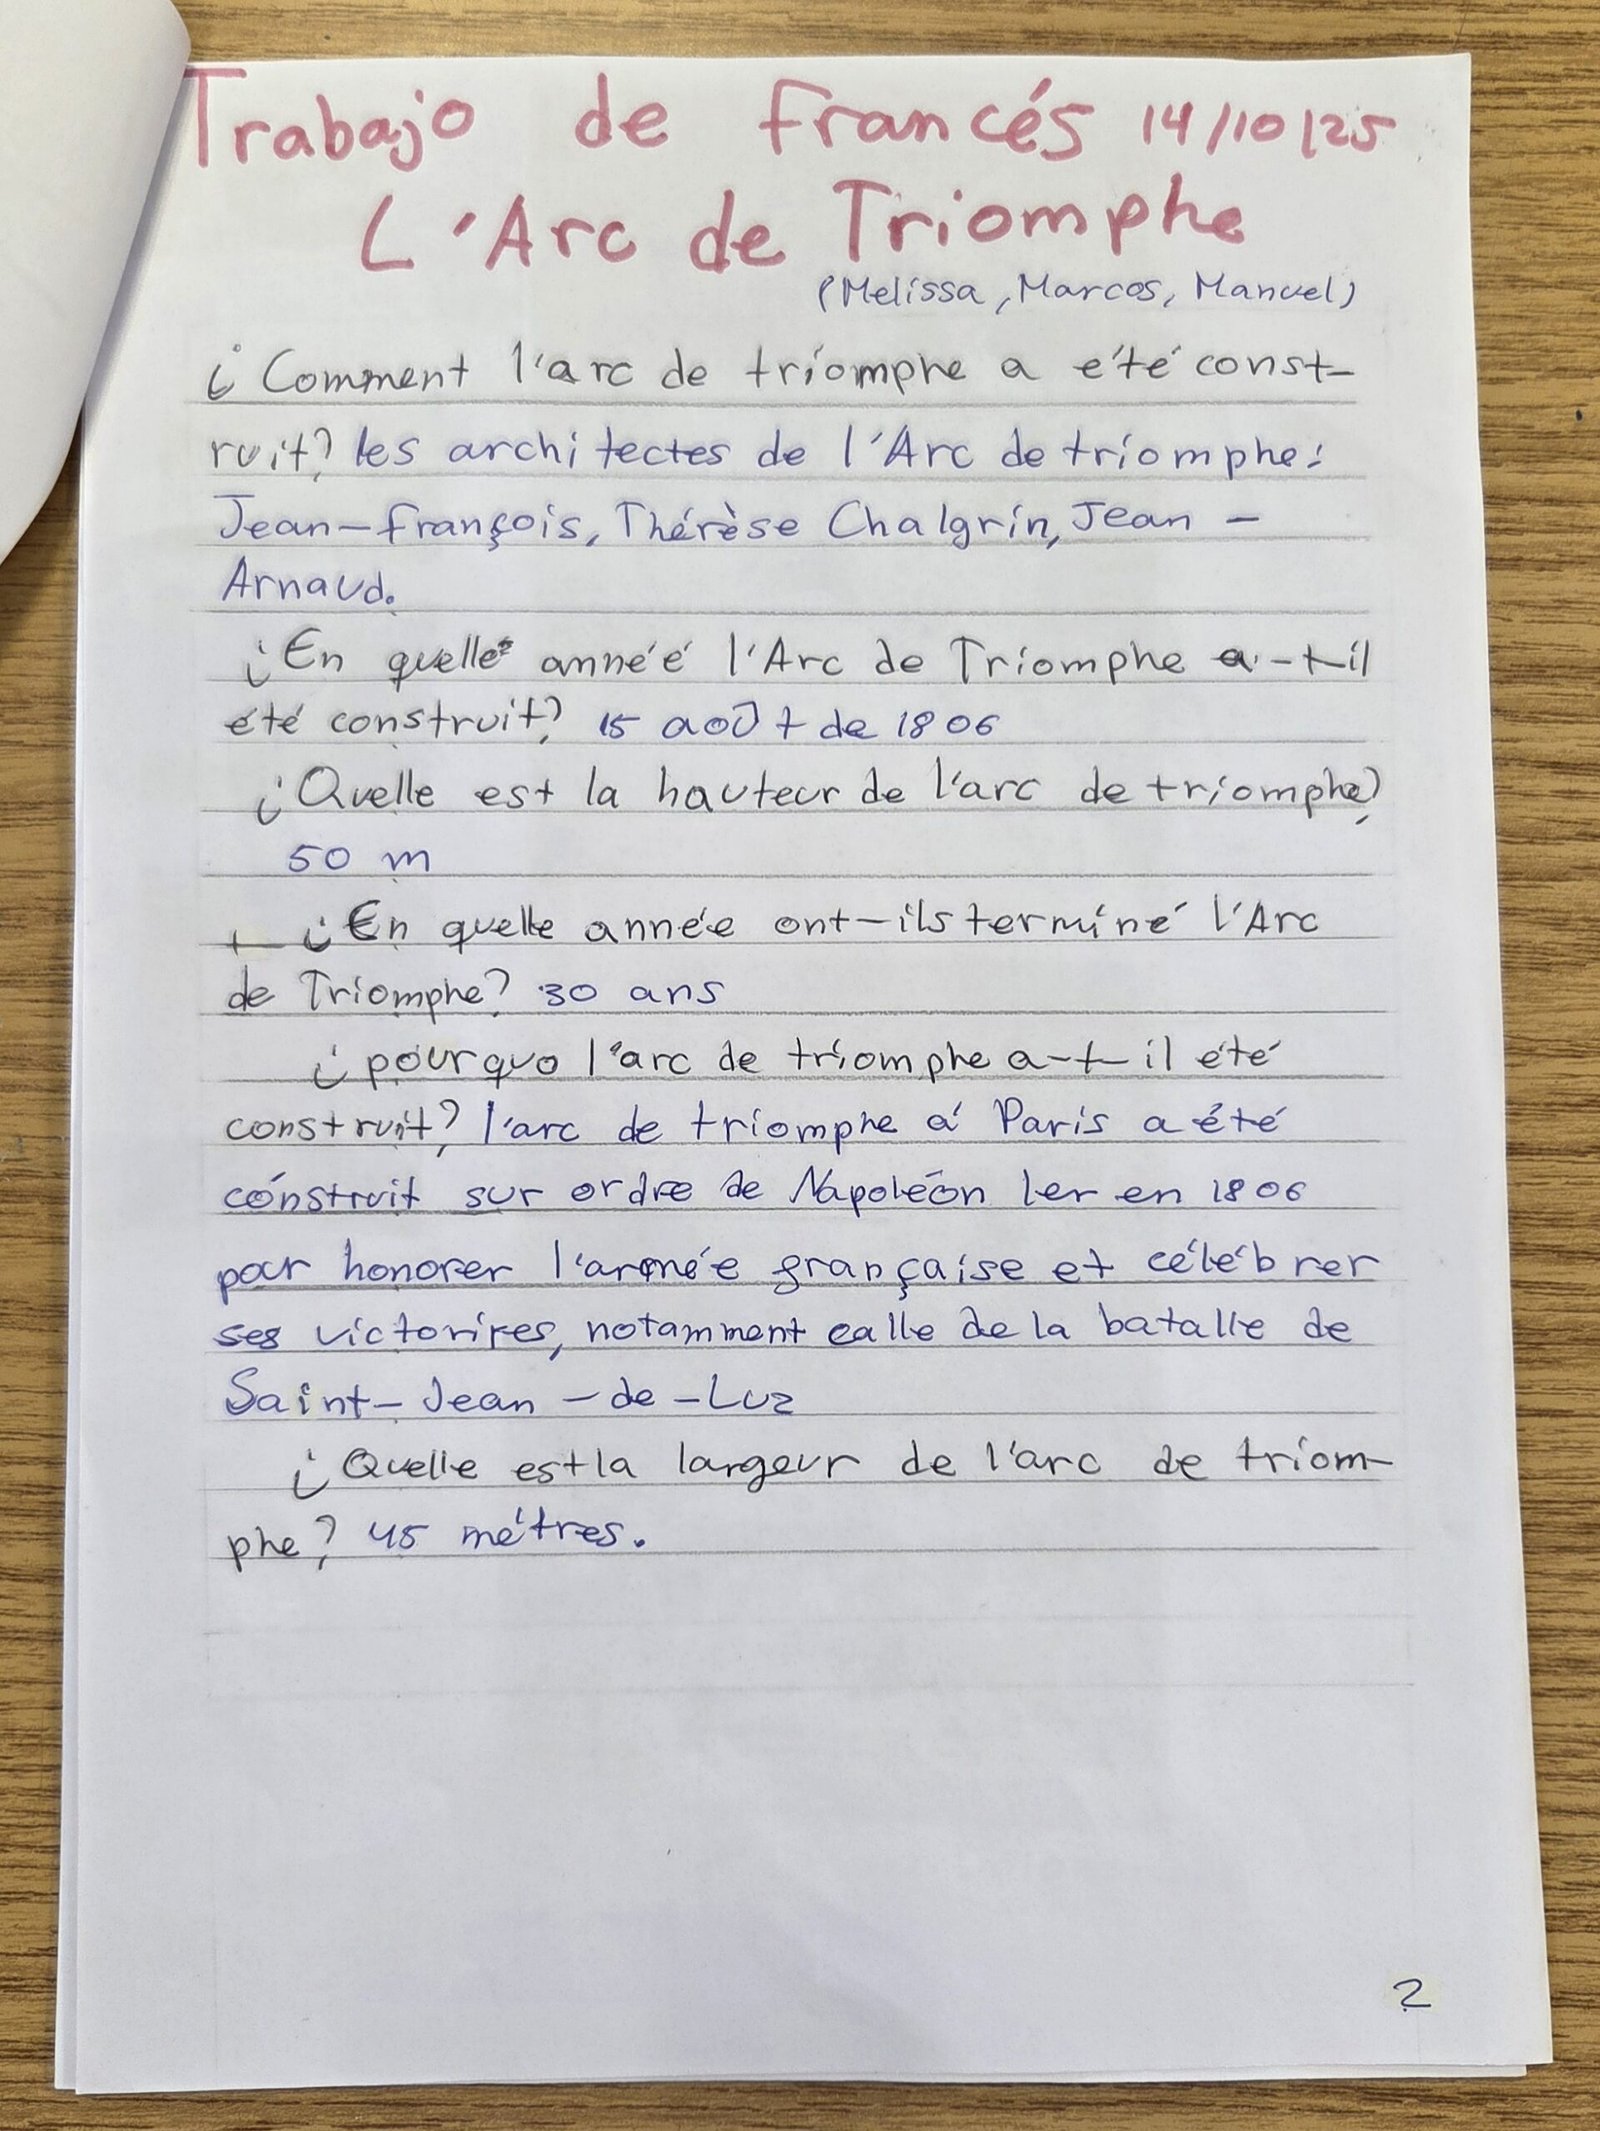 Trabajo de francés 14/10/25
L'Arc de Triomphe
(Melissa, Marcos, Manuel)
¿Comment l'arc de triomphe a été const-
ruit? les architectes de l'Arc de triomphe:
Jean-françois, Thérèse Chalgrin, Jean-
Arnaud.
¿En quelle année l'Arc de Triomphe a-t-il
été construit? 15 août de 1806
¿Quelle est la hauteur de l'arc de triomphe?
50 m
¿En quelle année ont-ils terminé l'Arc
de Triomphe? 30 ans
¿pourquo l'arc de triomphe a-t-il été
construit? l'arc de triomphe á Paris a été
construit sur ordre de Napoléon 1er en 1806
pour honorer l'armée française et célébrer
ses victorires, notamment calle de la batalle de
Saint-Jean-de-Luz
¿Quelle est la largeur de l'arc de triom-
phe? 45 métres.
2